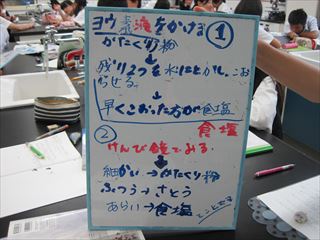 ヨウ素液をかける ①
かたくり粉
残り2つを水にとかし、こおらせる。
早くこおった方が食塩
② 食塩
けんび鏡でみる
細かい→かたくり粉
ふつう→さとう
あらい→食塩